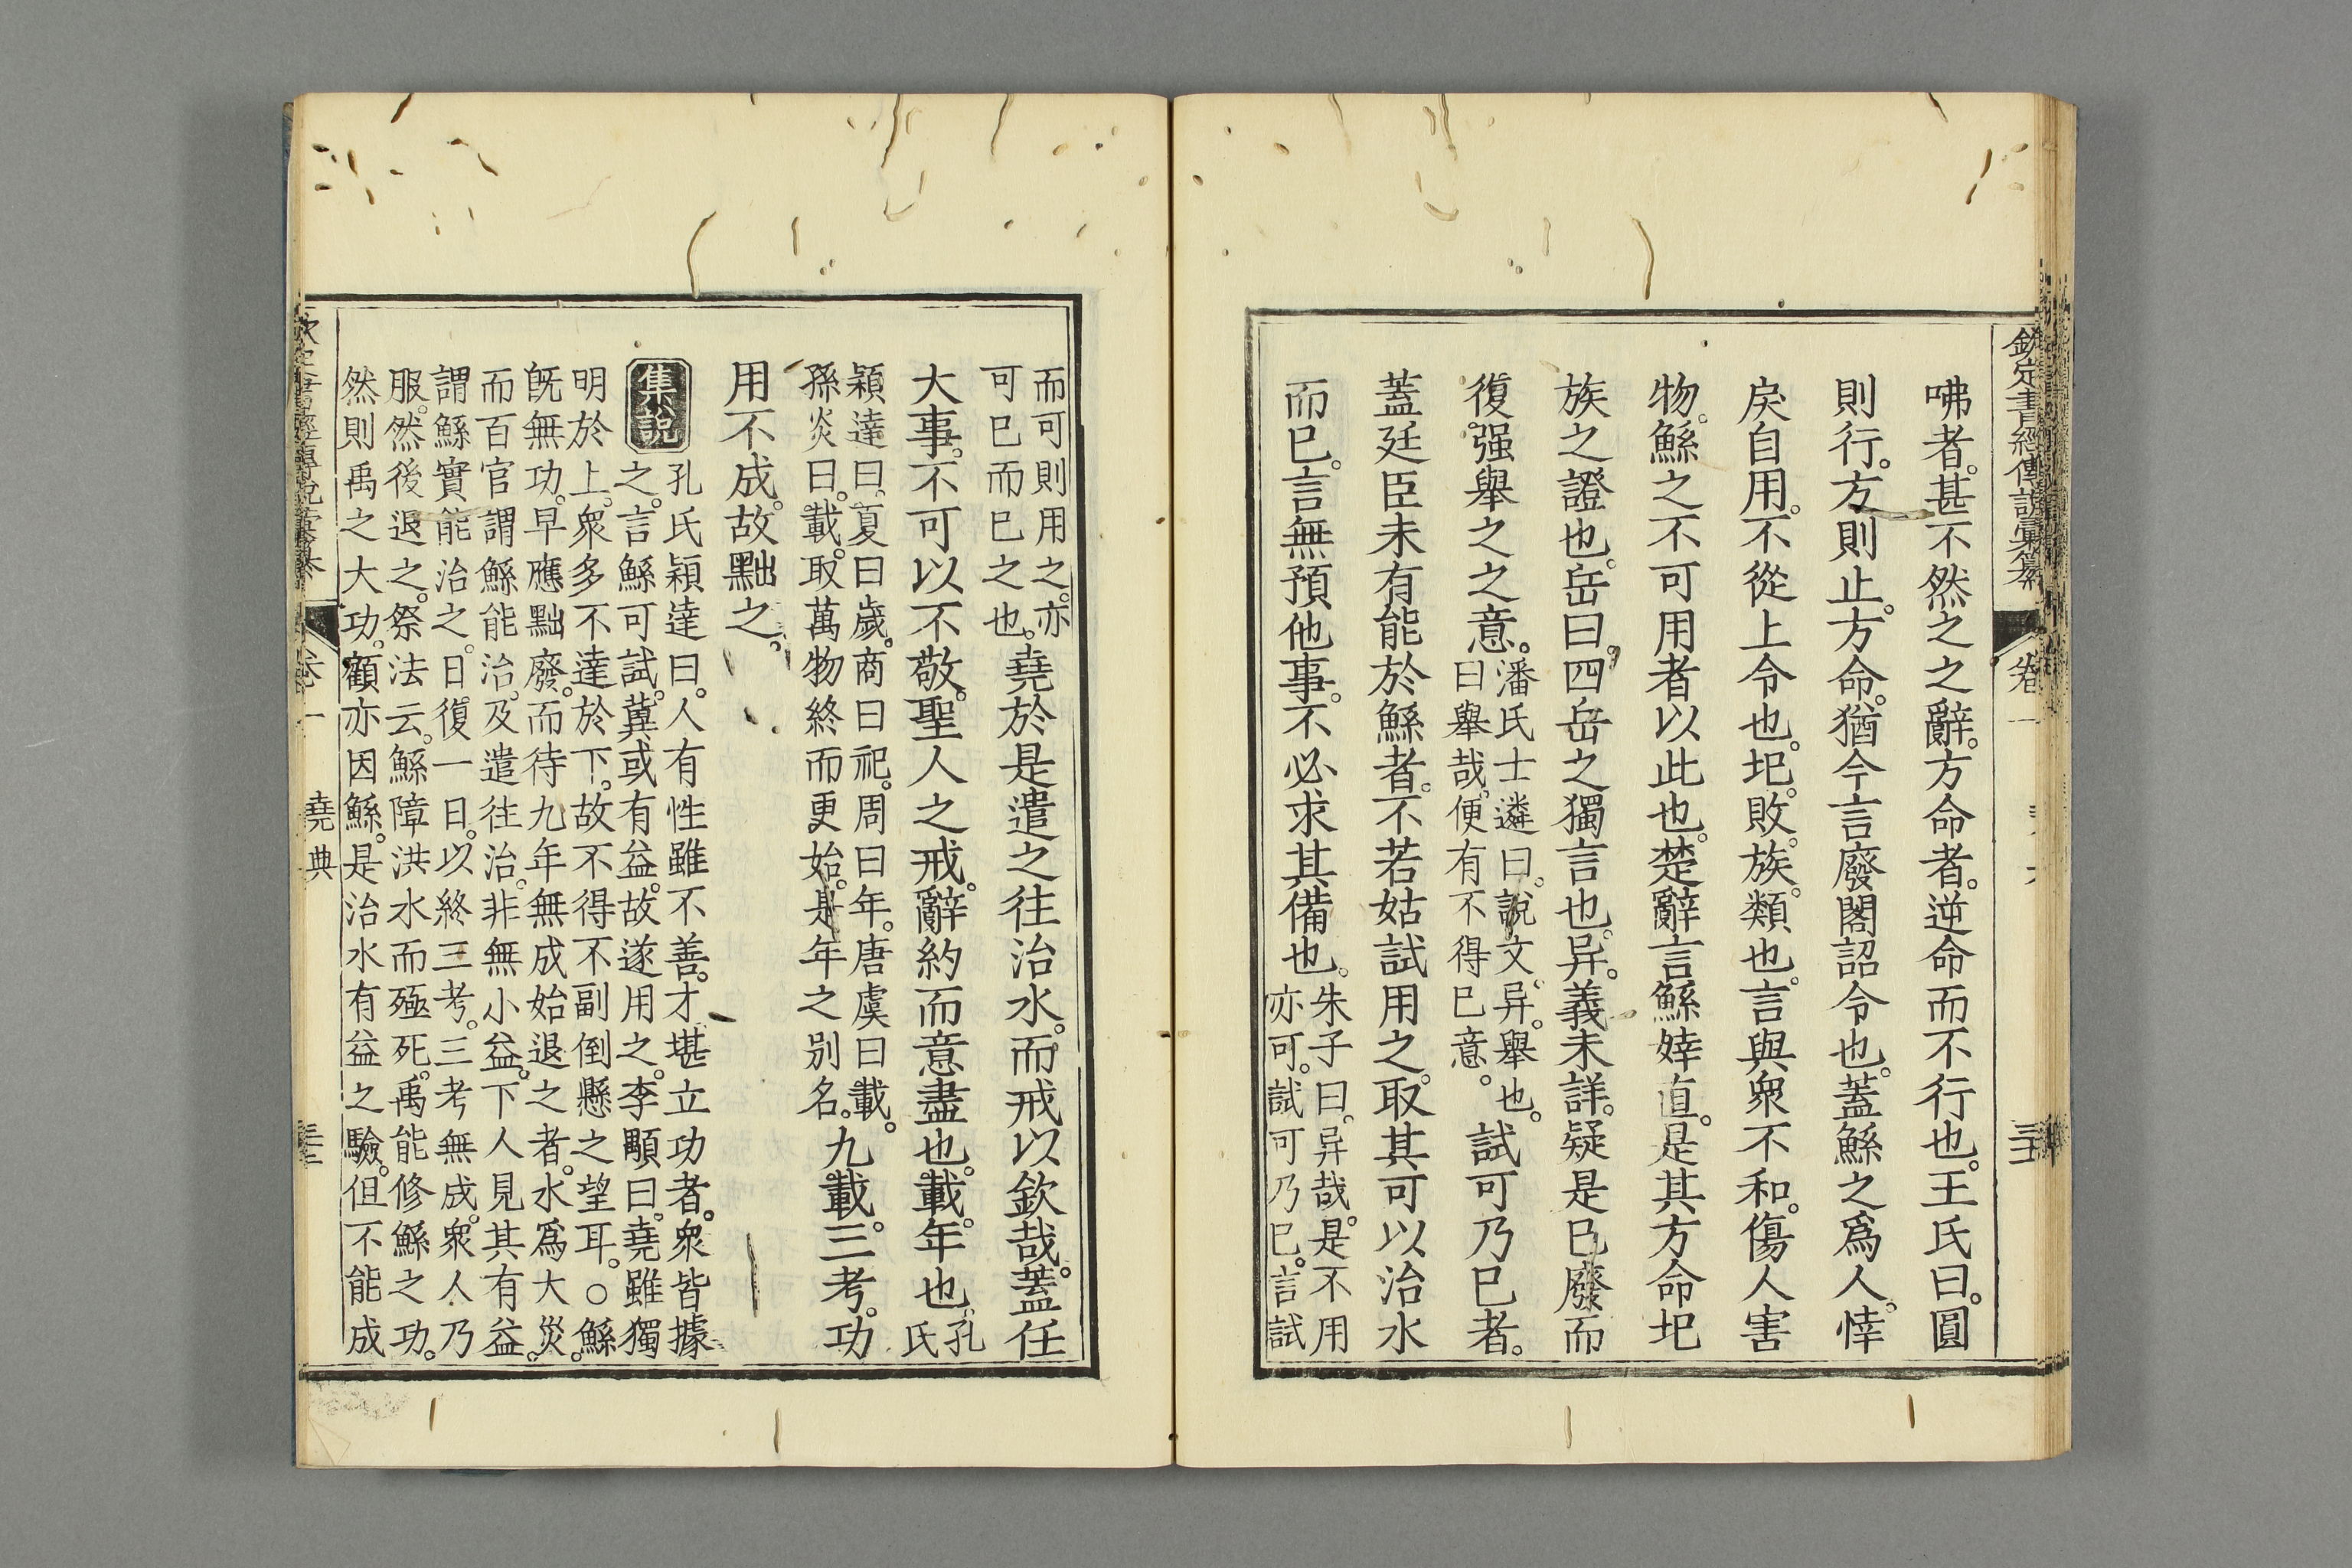 欽定書經傳說彙纂 卷一
咈者。甚不然之之辭。方命者。逆命而不行也。王氏曰。圓
則行。方則止。方命。猶今言廢閣詔令也。蓋鯀之爲人。悻
戾自用。不從上令也。圮。敗。族。類也。言與衆不和。傷人害
物。鯀之不可用者以此也。楚辭言鯀婞直。是其方命圮
族之證也。岳曰。四岳之獨言也。异。義未詳。疑是已廢而
復强舉之之意。
潘氏士遴曰。說文。异。舉也。
曰舉哉。便有不得已意。
試可乃已者。
蓋廷臣未有能於鯀者。不若姑試用之。取其可以治水
而已。言無預他事。不必求其備也。
朱子曰。异哉。是不用
亦可。試可乃已。言試
而可則用之。亦
可已而已之也。
堯於是遣之往治水。而戒以欽哉。蓋任
大事。不可以不敬。聖人之戒。辭約而意盡也。載。年也。
孔
氏
穎達曰。夏曰歲。商曰祀。周曰年。唐虞曰載。
孫炎曰。載。取萬物終而更始。是年之别名。
九載。三考。功
用不成。故黜之。
集說
孔氏穎達曰。人有性雖不善。才堪立功者。衆皆據
之。言鯀可試。冀或有益。故遂用之。李顒曰。堯雖獨
明於上。衆多不達於下。故不得不副倒懸之望耳。○鯀
旣無功。早應黜廢。而待九年無成始退之者。水爲大災。
而百官謂鯀能治。及遣往治。非無小益。下人見其有益。
謂鯀實能治之。日復一日。以終三考。三考無成。衆人乃
服。然後退之。祭法云。鯀障洪水而殛死。禹能修鯀之功。
然則禹之大功。顧亦因鯀。是治水有益之驗。但不能成
卷一 堯典